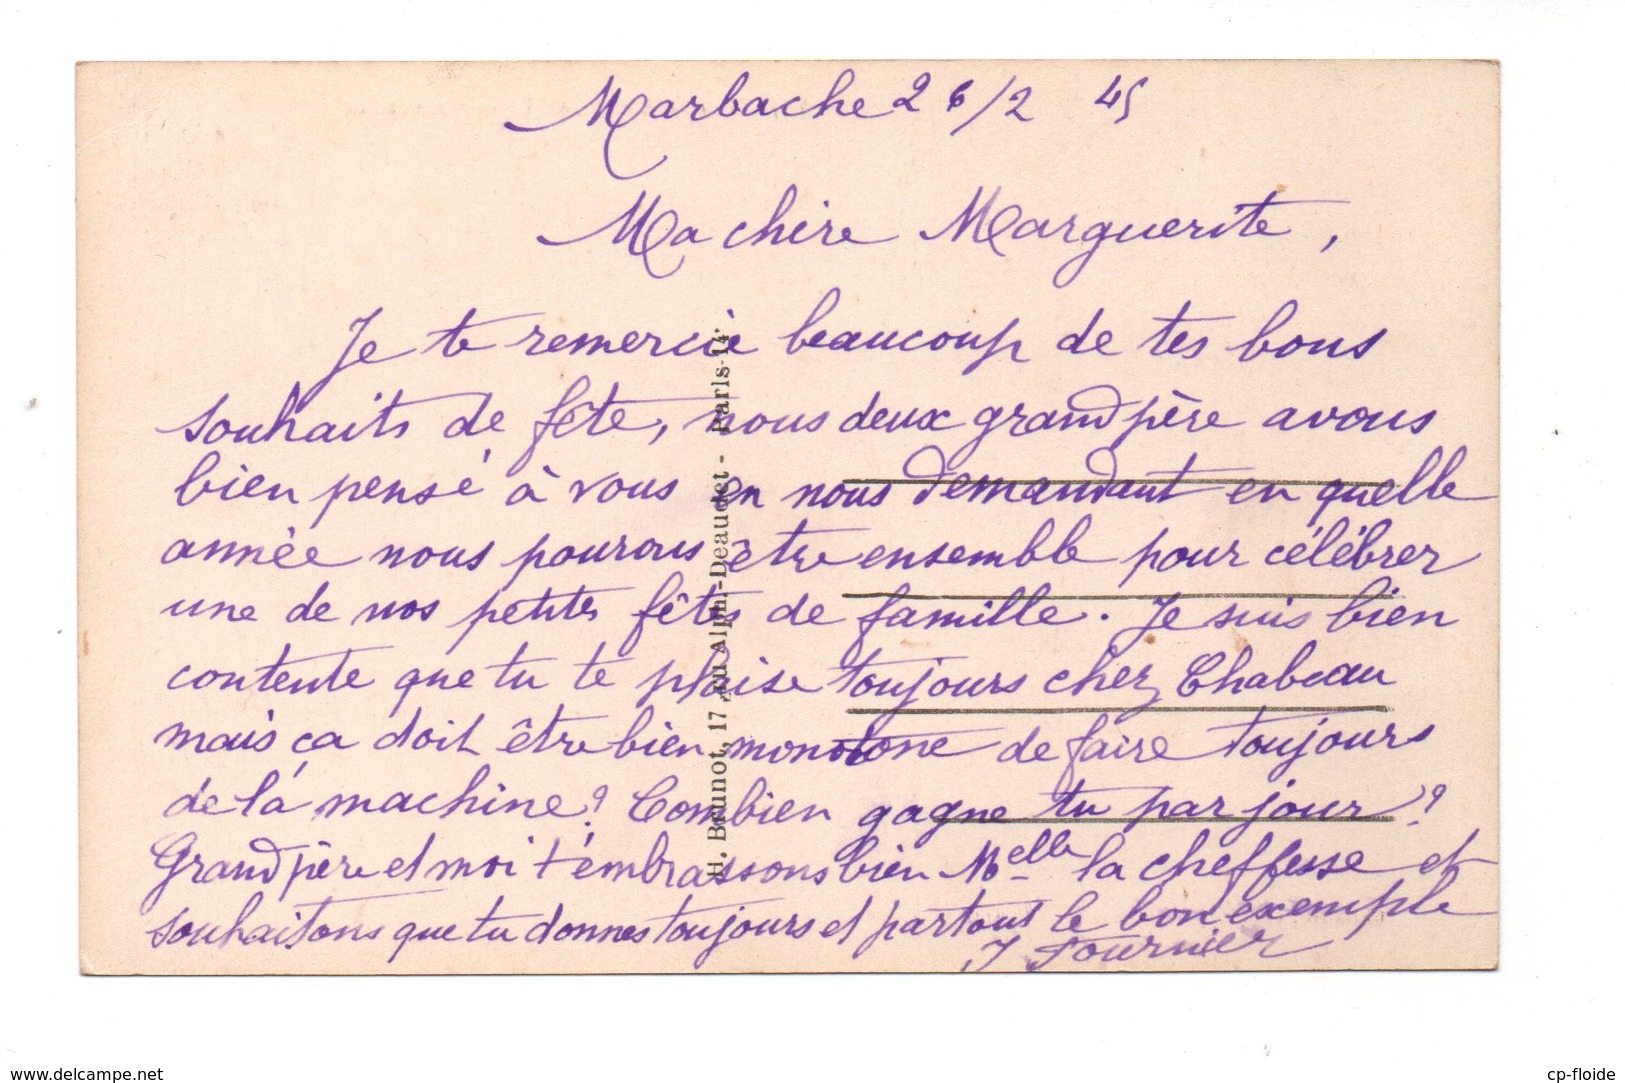 Marbache 26/2 45
Ma chère Marguerite,
Je te remercie beaucoup de tes bons
souhaits de fête, nous deux grand père avons
bien pensé à vous en nous demandant en quelle
année nous pourons être ensemble pour célébrer
une de nos petites fêtes de famille. Je suis bien
contente que tu te plaise toujours chez Chabeau
mais ça doit être bien monotone de faire toujours
de la machine? Combien gagne tu par jour?
Grand père et moi t'embrassons bien Melle la cheffesse et
souhaitons que tu donnes toujours et partout le bon exemple
J Fournier
H. Brunot, 17, ru Alph.-Deaudet - Paris-14.
www.delcampe.net
cp-floide